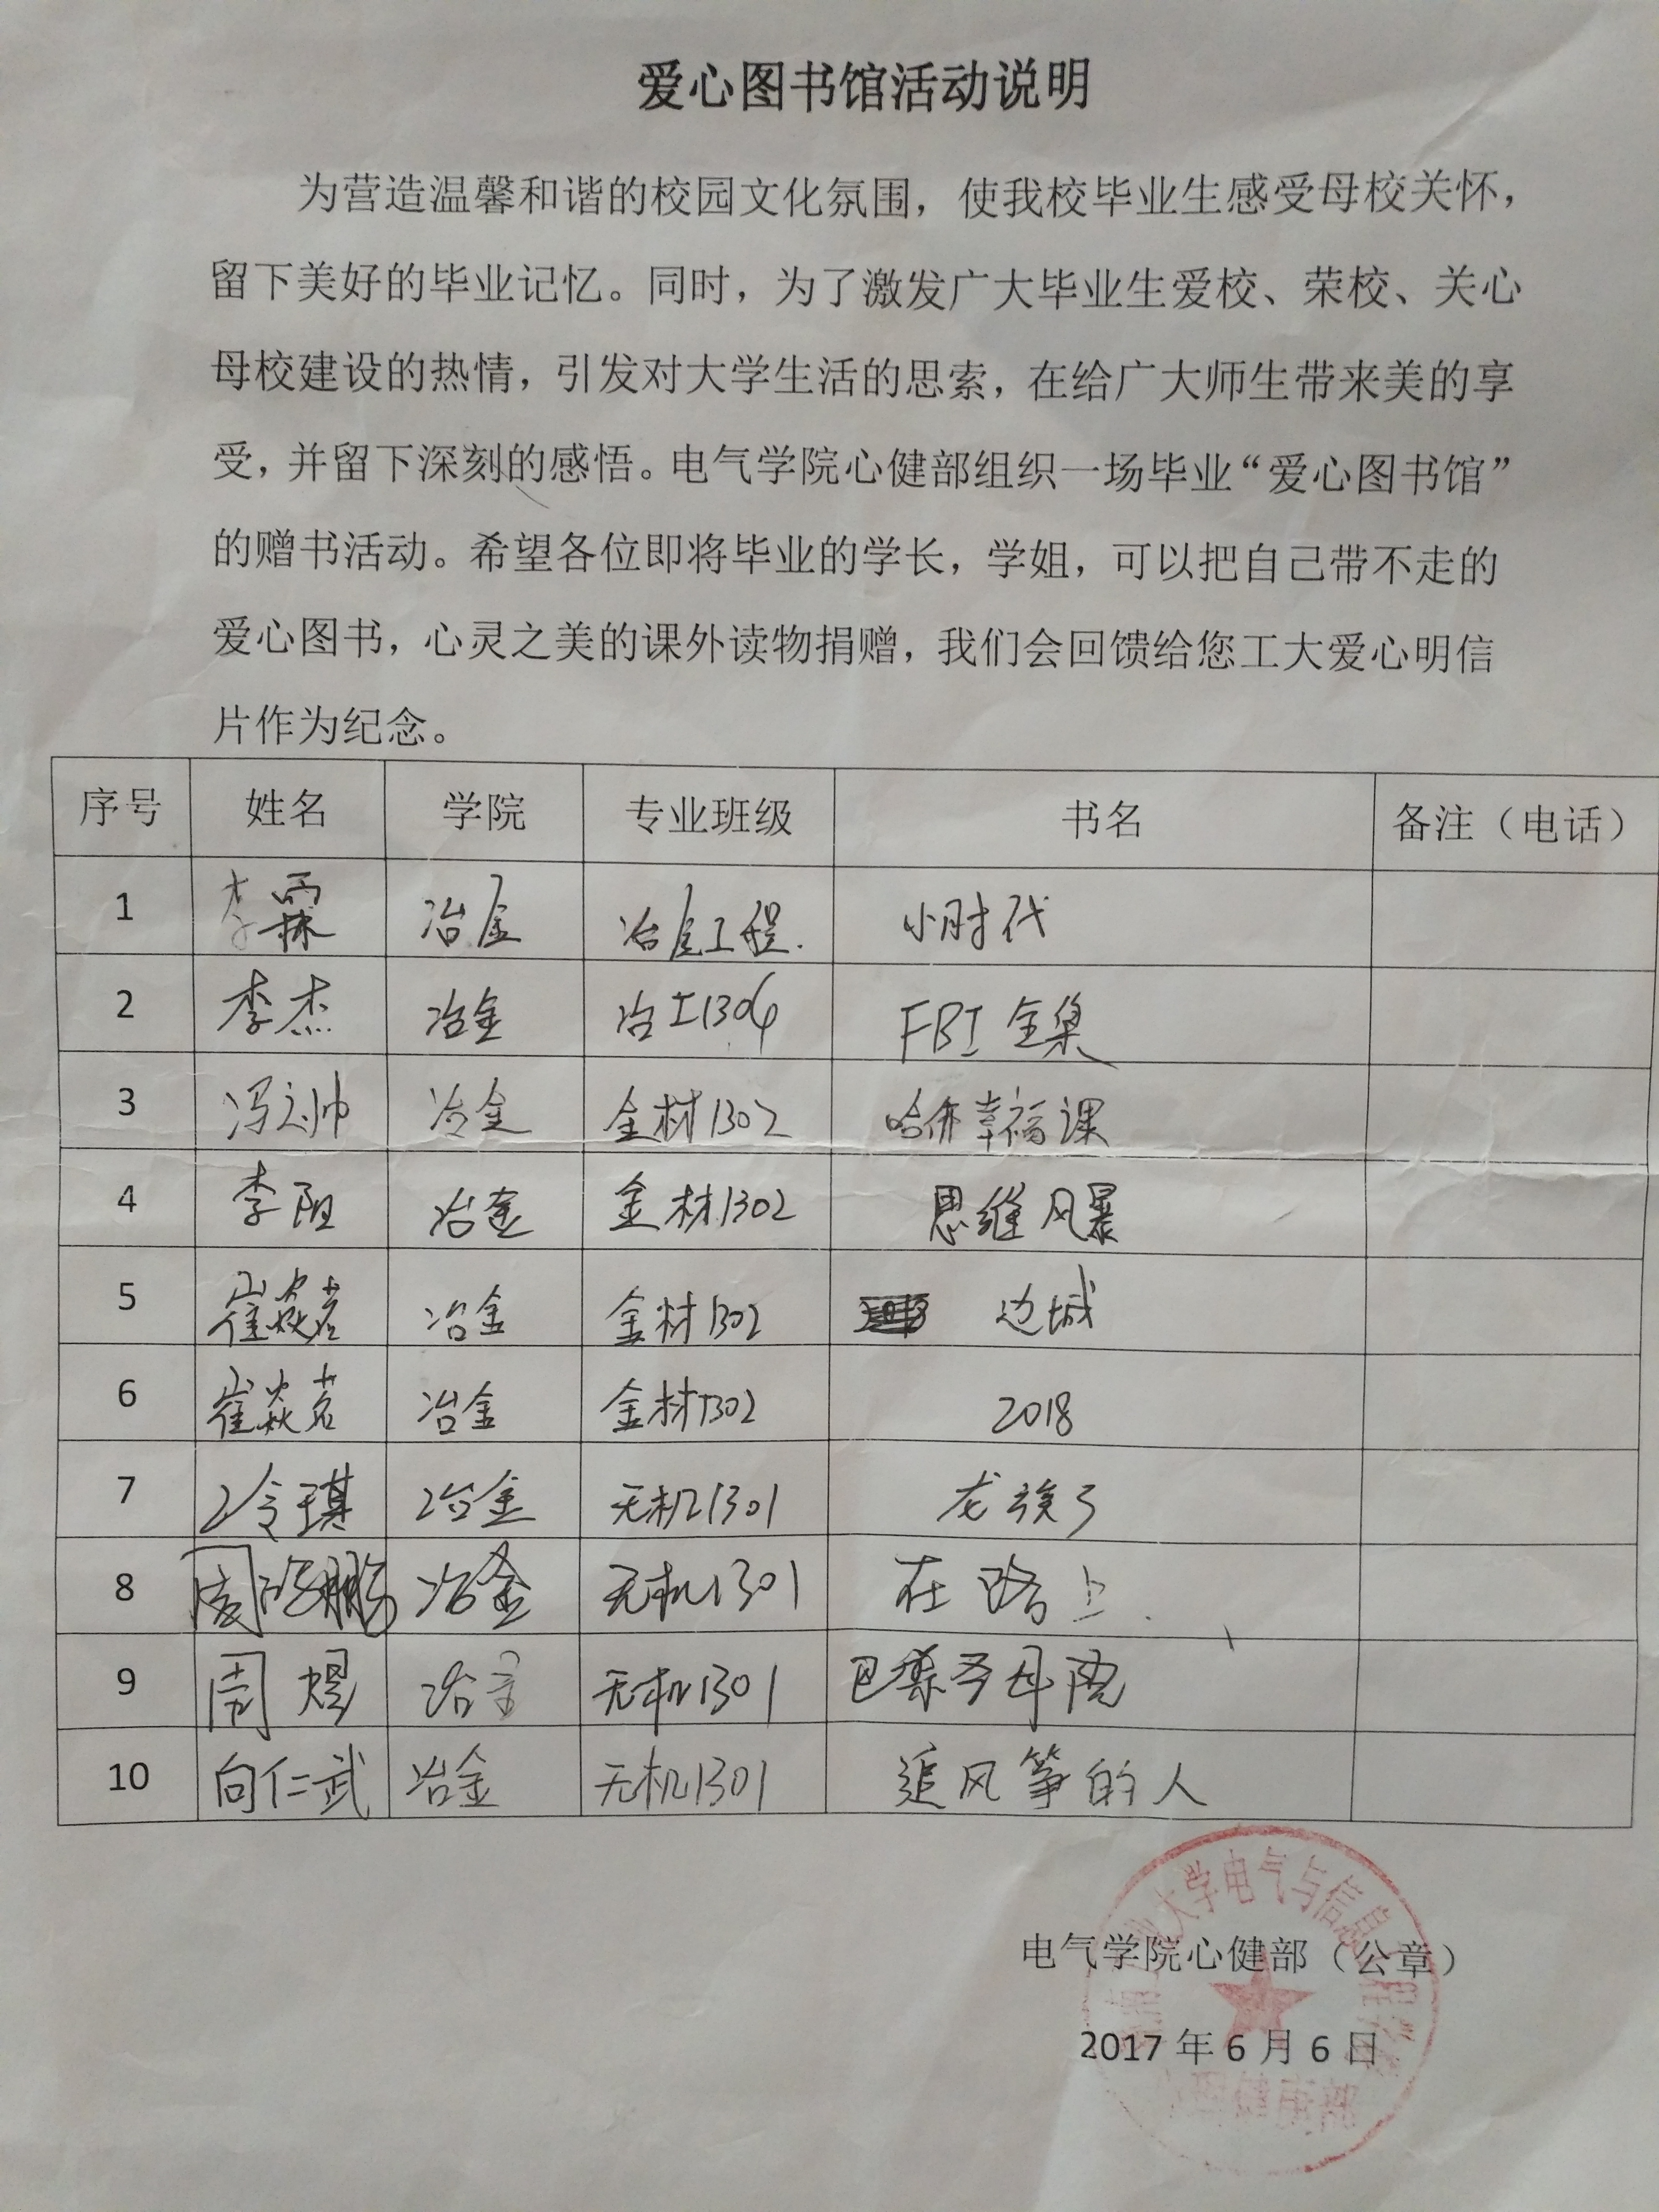 爱心图书馆活动说明
为营造温馨和谐的校园文化氛围，使我校毕业生感受母校关怀，
留下美好的毕业记忆。同时，为了激发广大毕业生爱校、荣校、关心
母校建设的热情，引发对大学生活的思索，在给广大师生带来美的享
受，并留下深刻的感悟。电气学院心健部组织一场毕业“爱心图书馆”
的赠书活动。希望各位即将毕业的学长，学姐，可以把自己带不走的
爱心图书，心灵之美的课外读物捐赠，我们会回馈给您工大爱心明信
片作为纪念。
序号 姓名 学院 专业班级 书名 备注（电话）
1 李霖 冶金 冶金工程. 小时代
2 李杰 冶金 冶工1304 FBI全集
3 冯 帅 冶金 金材1302 哈佛幸福课
4 李阳 冶金 金材1302 思维风暴
5 崔焱茗 冶金 金材1302 边城
6 崔焱茗 冶金 金材1302 2018
7 琪 冶金 无机1301 龙族3
8 周 鹏 冶金 无机1301 在路上.
9 周煜 冶金 无机1301 巴黎圣母院
10 向仁武 冶金 无机1301 追风筝的人
大学电气与信息工程学院
电气学院心健部（公章）
2017年6月6日
心理健康部